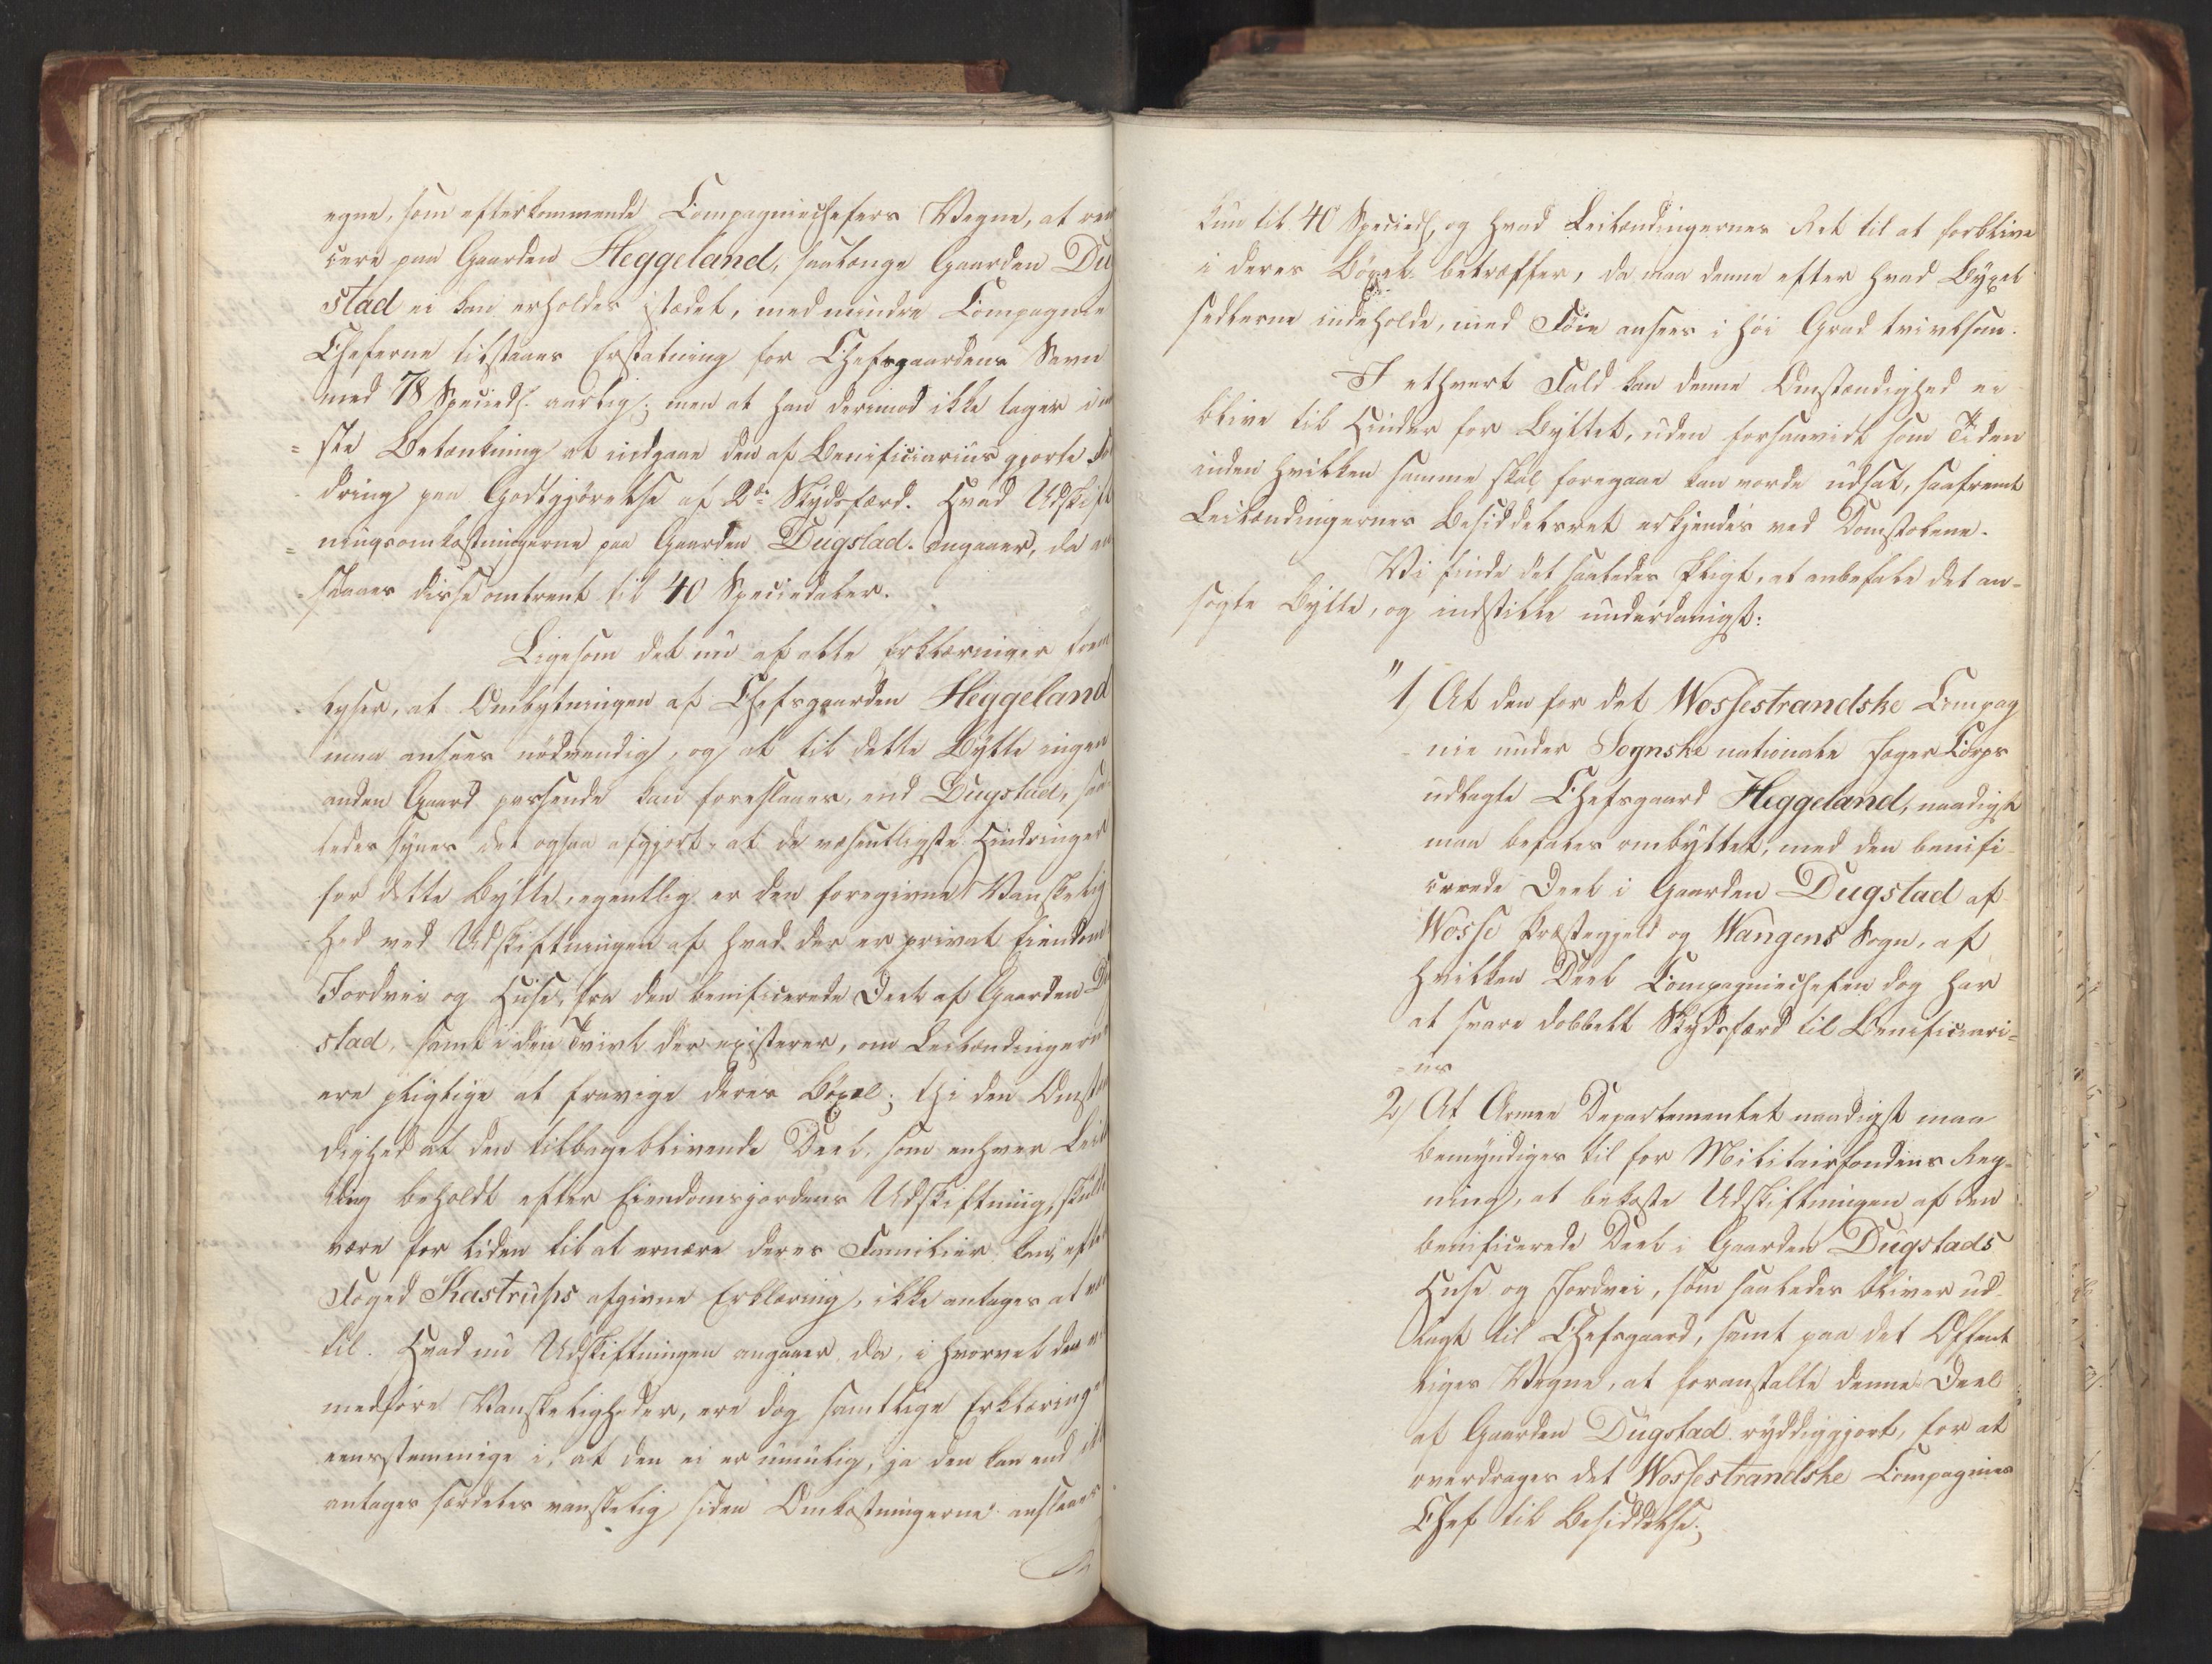 egne, som efterkommende Compagniechefers Vegne, at ren
cere paa Gaarden Heggeland, saalænge Gaarden Du
stad ei kan erholdes istædet, med mindre Compagnie
Cheferne tilstaaes Erstatning for Chefsgaardens Savn
med 78 Specied. aarlig; men at han derimod ikke tager i m
ste Betænkning at indgaae den af Benificiarius gjorte Fo
dring paa Godtgjörelse af 2de Skydsfærd. Hvad Udskift
ningsomkostningerne paa Gaarden Dugstad angaaer, da an
slaaes disse omtrent til 40 Speciedaler.
Ligesom det nu af alle Erklæringer frem
lyser, at Ombytningen af Chefsgaarden Heggeland
maa ansees nödvendig, og at til dette Bytte ingen
anden Gaard passende kan foreslaaes, end Dugstad, saa
ledes synes det ogsaa afgjort, at de væsentligste Hindringer
for dette Bytte, egentlig er den foregivne Vanskelig
hed ved Udskiftningen af hvad der er privat Eiendom
Jordvei og Huse, fra den benificerede Deel af Gaarden Du
stad, samt i den Tvivl der existerer, om Leilændingerne
ere pligtige at fravige deres Böxel; thi den Omstæn
dighed at den tilbageblivende Deel, som enhver Leilæn
ding beholdt efter Eiendomsjordens Udskiftning, skulde
være for liden til at ernære deres Familier kan, efter
Foged Kastrups afgivne Erklæring, ikke antages at være
til. Hvad nu Udskiftningen angaaer, da, i hvorvel den vil
medföre Vanskeligheder, ere dog samtlige Erklæringer
eensstemmige i, at den ei er umulig, ja den kan end ikke
antages særdeles vanskelig siden Omkostningerne anslaaes
kun til 40 Specied, og hvad Leilændingernes Ret til at forblive
i deres Böxel betræffer, da maa denne efter hvad Byxel
sedlerne indeholde, med Föie ansees i höi Grad tvivlsom.
I ethvert Fald kan denne Omstændighed ei
blive til Hinder for Byttet, uden forsaavidt som Tiden
inden hvilken samme skal foregaae kan vorde udsat, saafremt
Leilændingernes Besiddelsret erkjendes ved Domstolene.
Vi finde det saaledes Pligt, at anbefale det an-
sögte Bytte, og indstille underdanigst:
"1) At den for det Wossestrandske Compag
nie under Sognske nationale Jæger Corps
udlagte Chefsgaard Heggeland, naadigst
maa befales ombyttet, med den benifi-
cerede Deel i Gaarden Dugstad af
Wosse Præstegjeld og Wangens Sogn, af
hvilken Deel Compagniechefen dog har
at svare dobbelt Skydsfærd til Benificiari-
us
2) At Armee Departementet naadigst maa
bemyndiges til for Militairfondens Reg-
ning, at bekoste Udskiftningen af den
benificerede Deel i Gaarden Dugstads
Huse og Jordvei, som saaledes bliver ud-
lagt til Chefsgaard, samt paa det Offent
liges Vegne, at foranstalte denne Deel
af Gaarden Dugstad ryddiggjort, for at
overdrages det Wossestrandske Compagnies
Chef til Besiddelse;